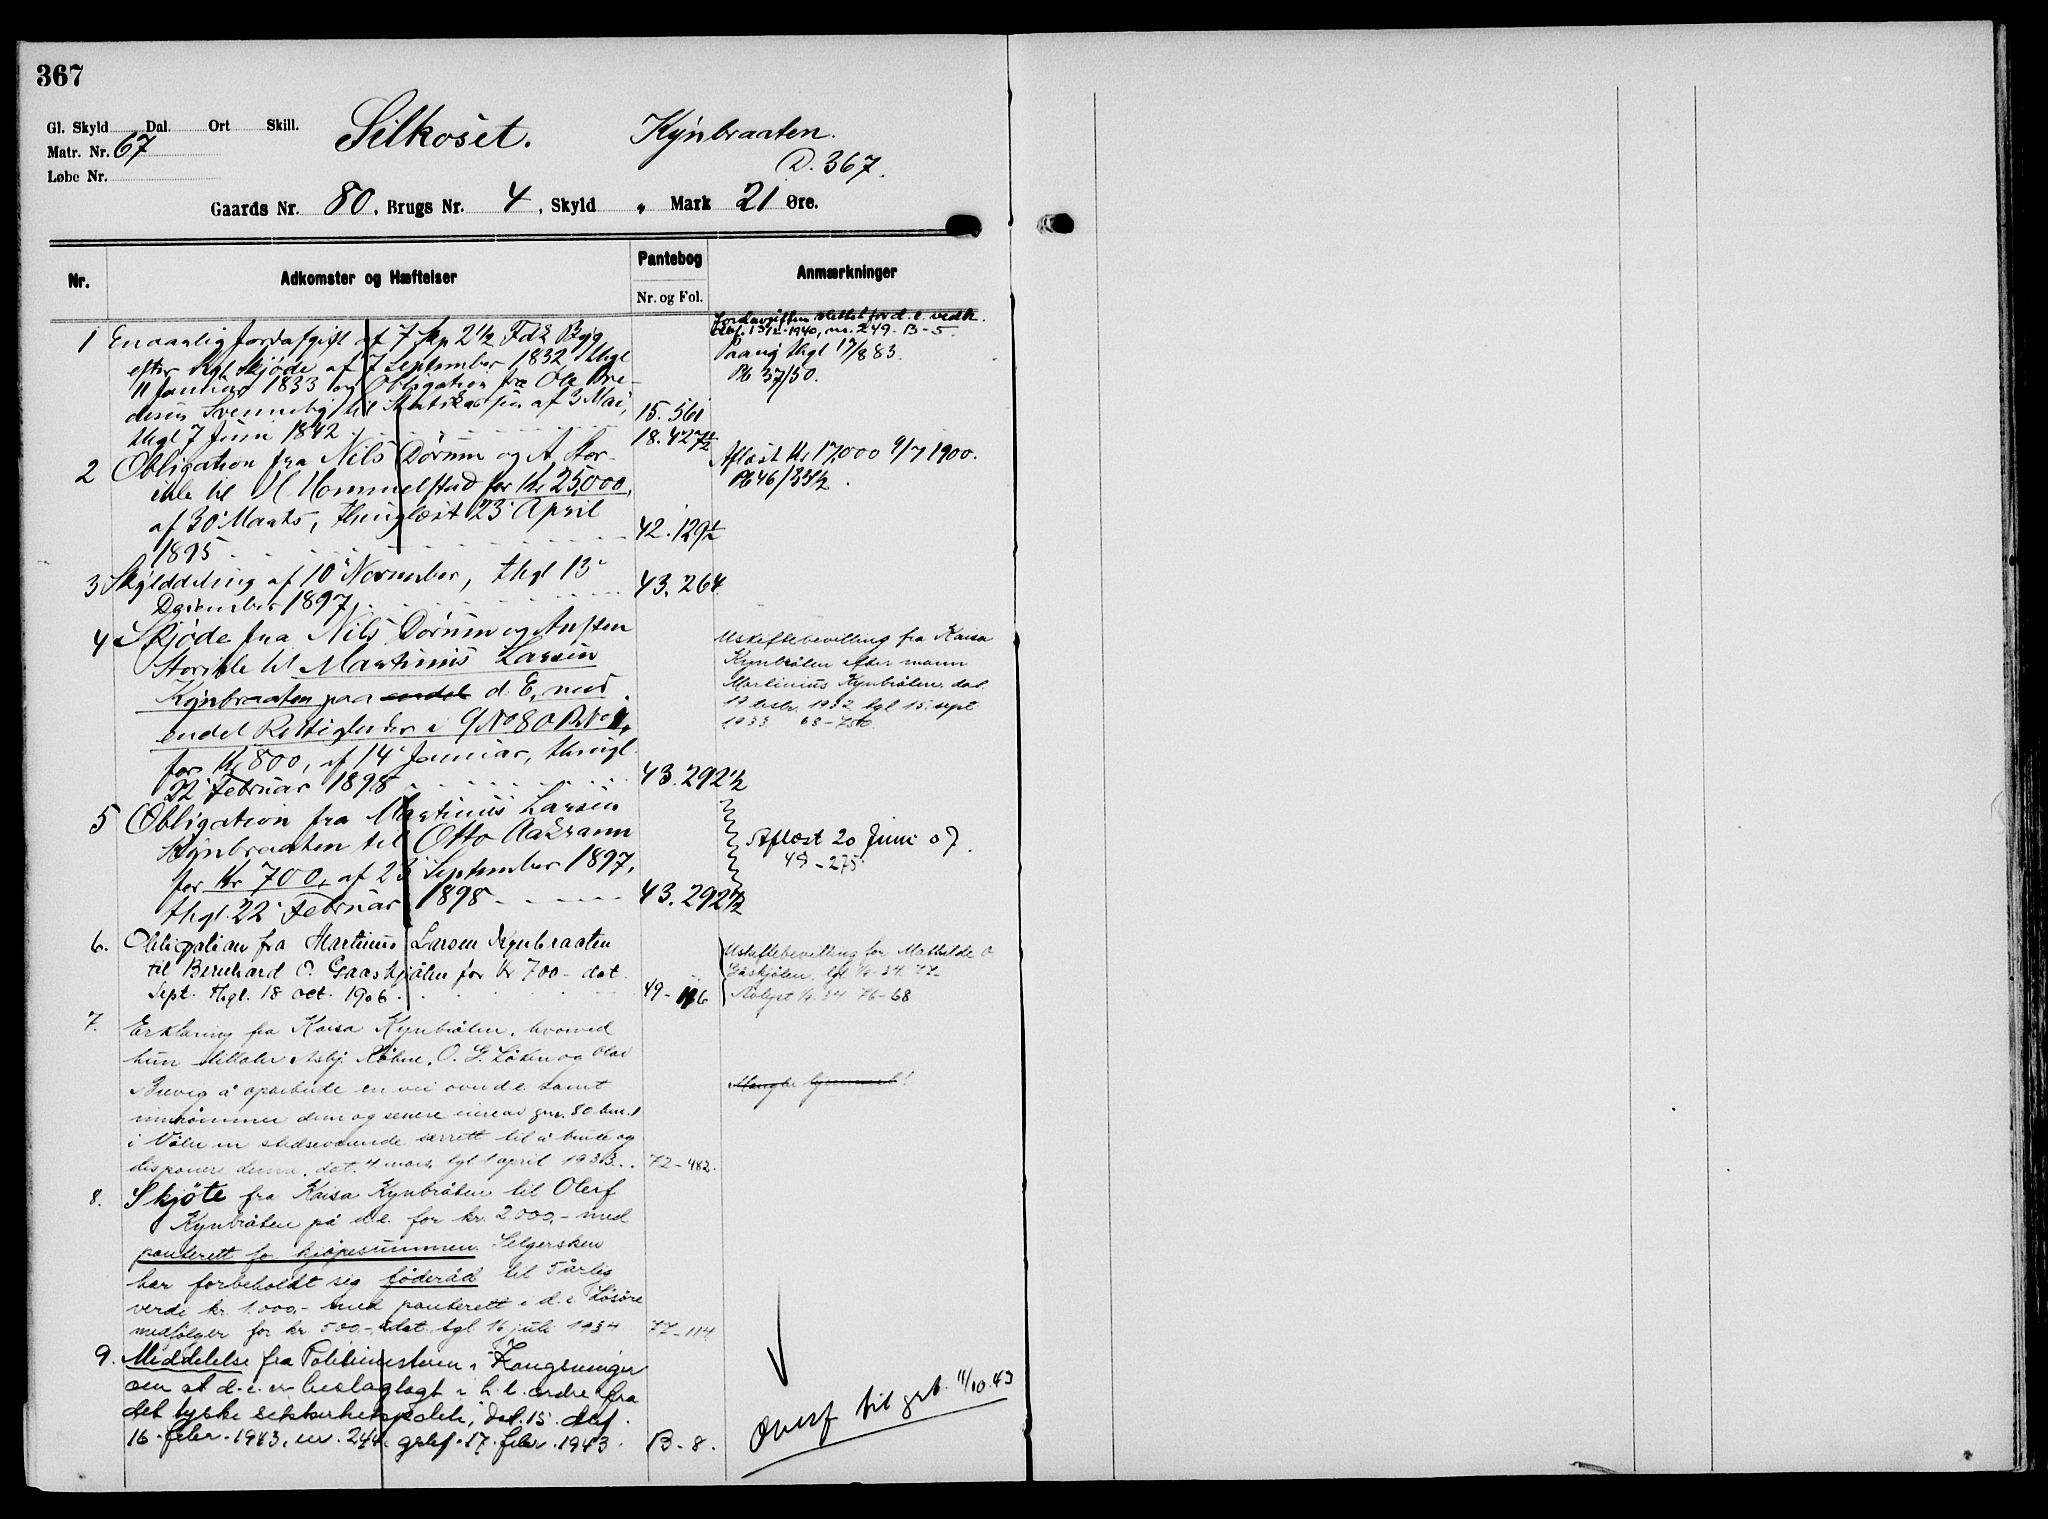 367
Gl. Skyld Dal. Ort Skill.
Matr. Nr. 67
Løbe Nr.
Silkoset. Kynbraaten.
D. 367.
Gaards Nr. 80, Brugs Nr. 4, Skyld " Mark 21 Øre.
Nr. Adkomster og Hæftelser Pantebog Anmærkninger
Nr. og Fol.
1 En aarlig Jordafgift af 7 Skp 2½ Fdk Byg
efter kgl. Skjøde af 7 September 1832, thgl
11 Januar 1833 og Obligation fra Ole Bre-
desen Svenneby til Statskassen af 3 Mai,
thgl 7 Juni 1842 15. 561
18. 427½
Jordavgiften slettet for d. e. vedk.
1940, nr. 249. B-5.
Paany thgl 17/8 83.
Pb 37/50.
2 Obligation fra Nils Dørum og A. Stor-
ihle til H. Hommelstad for Kr 25,000,
af 30 Marts, thinglæst 23 April
1895 42. 129½
Aflæst Kr 17,000 9/7 1900.
Pb 46/33½.
3 Skylddeling af 10 November, thgl 13
December 1897 43. 264
4 Skjøde fra Nils Dørum og Austen
Storihle til Martinius Larsen
Kynbraaten paa endel d. E, med
endel Rettigheder i G No 80 B. No 1,
for Kr 800, af 14 Januar, thingl.
22 Februar 1898 43. 292½
Uskiftebevilling fra Kaisa
Kynbråten efter mann
Martinius Kynbråten, dat.
19 desbr. 1932 tgl 15. sept
1933 68-756
5 Obligation fra Martinius Larsen
Kynbraaten til Otto Aakrann
for Kr 700, af 23 September 1897,
thgl. 22 Februar 1898 43. 292½
Aflæst 20 Juni 07.
49-275
6. Obligation fra Martinius Larsen Kynbraaten
til Bernhard O. Gaaskjølen for Kr 700- dat.
Sept. thgl. 18 oct. 1906. 49-116
Uskiftebevilling for Mathilde O
Gåskjølen, tgl
Avlyst 34 76-68
7. Erklæring fra Kaisa Kynbråten, hvorved
hun tillater Asbj. O. G. Løken og Olav
Breveg å oparbeide en vei over d.e. samt
innrømmer dem og senere eiere av gnr. 80 bnr. 1
i Våler en stedsevarende særrett til å bruke og
disponere denne, dat. 4 mars, tgl 1 april 1933.. 72-482.
Mangler hjemmel!
8. Skjøte fra Kaisa Kynbråten til Oluf
Kynbråten på d.e. for kr. 2.000,- med
panterett for kjøpesummen. Selgersken
har forbeholdt sig føderåd til 5 årlig
verdi kr. 1.000,- med panterett i d.e. Løsøre
medfølger for kr. 500,-, dat. tgl 16 juli 1934 77-114
9. Meddelelse fra Politimesteren i Kongsvinger
om at d.e. er beslaglagt i h.t. ordre fra
det tyske sikkerhetspoliti, dat. 15. dbf.
16. febr. 1943. nr. 244. gslef. 17. febr. 1943. B-8.
Overf til grb. 11/10.43